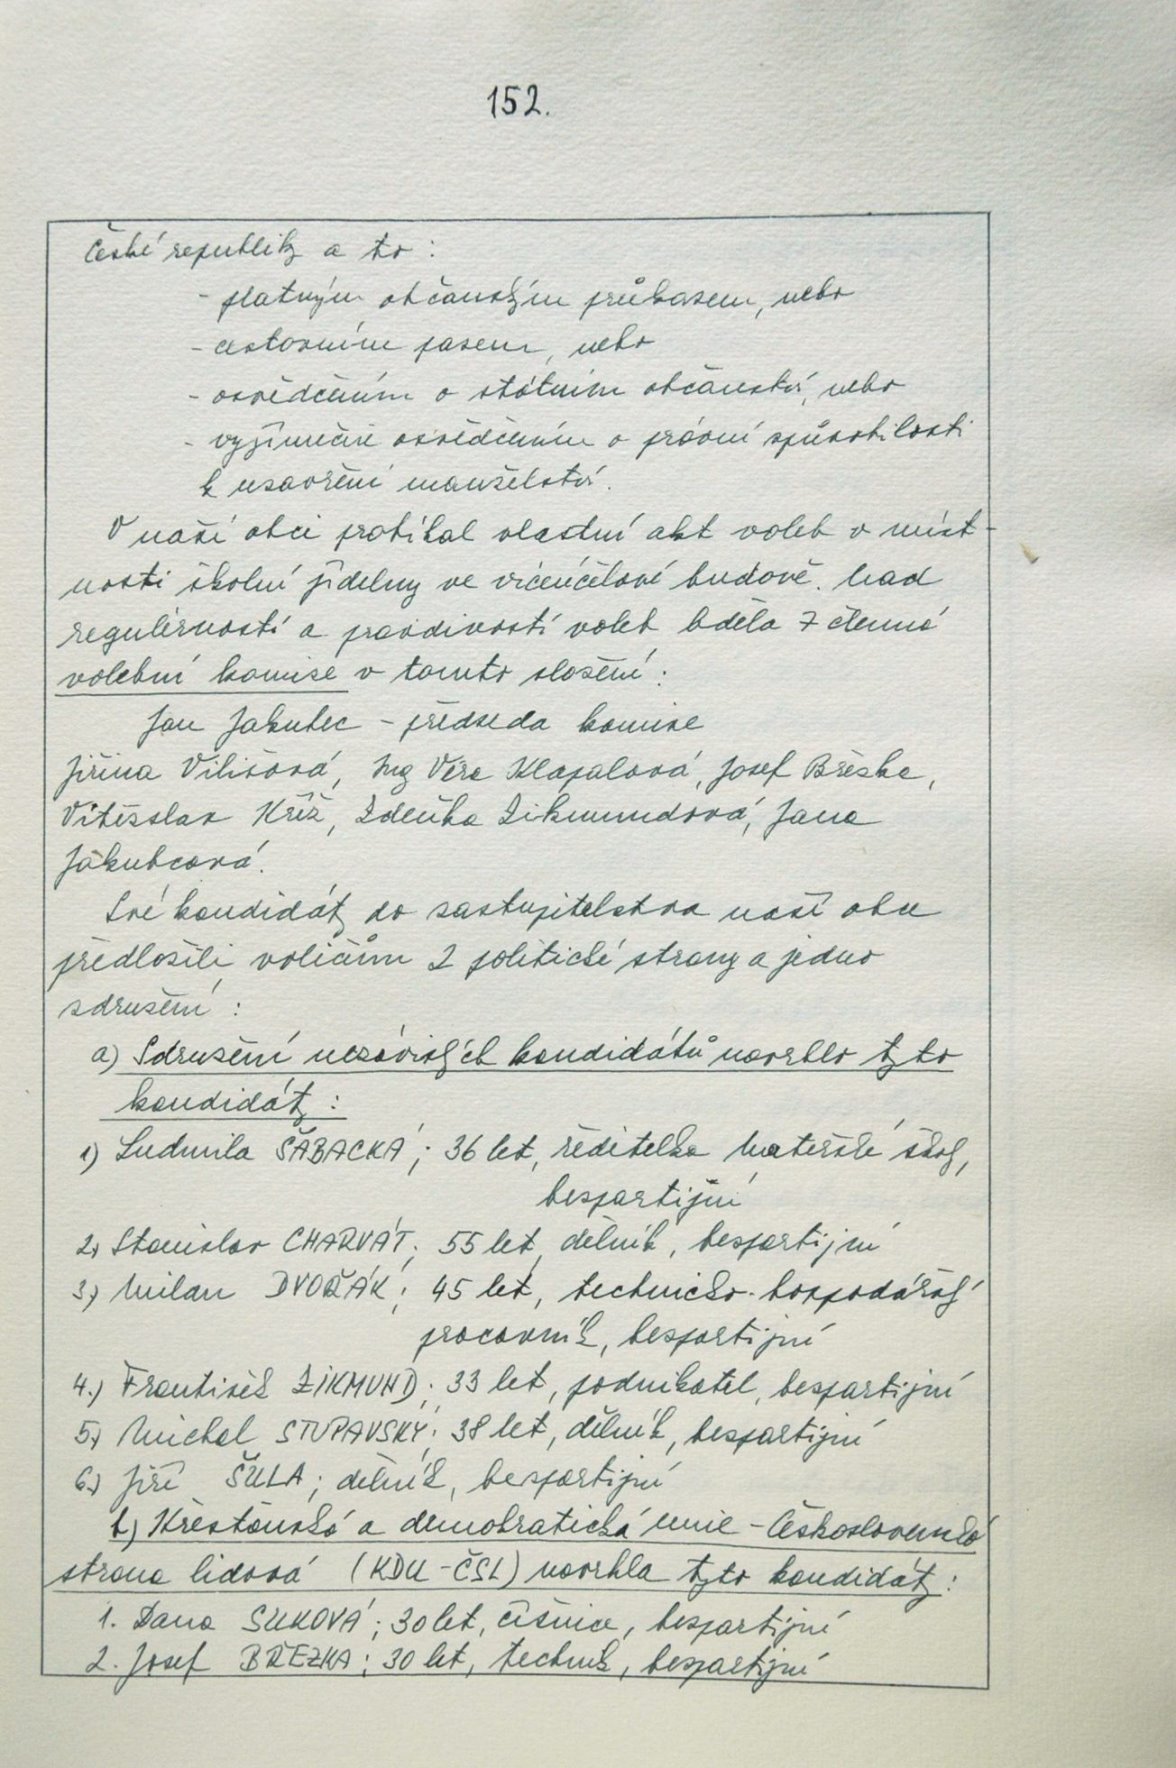 152.
České republiky a to :
- platným občanským průkazem, nebo
- cestovním pasem, nebo
- osvědčením o státním občanství, nebo
- výjimečně osvědčením o právní způsobilosti
k uzavření manželství.
V naší obci probíhal vlastní akt voleb v míst-
nosti školní jídelny ve víceúčelové budově. Nad
regulérností a pravdivostí voleb bděla 7 členná
volební komise v tomto složení :
Jan Jakubec - předseda komise
Jiřina Vilišová, Ing Věra Klapalová, Josef Březka,
Vítězslav Kříž, Zdeňka Zikmundová, Jana
Jakubcová.
Své kandidáty do zastupitelstva naší obce
předložili voličům 2 politické strany a jedno
sdružení :
a) Sdružení nezávislých kandidátů navrhlo tyto
kandidáty :
1) Ludmila ŠABACKÁ ; 36 let, ředitelka Mateřské školy,
bezpartijní
2) Stanislav CHARVÁT ; 55 let, dělník, bezpartijní
3) Milan DVOŘÁK ; 45 let, technicko-hospodářský
pracovník, bezpartijní
4.) František ZIKMUND ; 33 let, podnikatel, bezpartijní
5) Michal STUPAVSKÝ ; 38 let, dělník, bezpartijní
6.) Jiří ŠULA ; dělník, bezpartijní
b) Křesťanská a demokratická unie - Československá
strana lidová (KDU-ČSL) navrhla tyto kandidáty :
1. Dana SUKOVÁ ; 30 let, číšnice, bezpartijní
2. Josef BŘEZKA ; 30 let, technik, bezpartijní